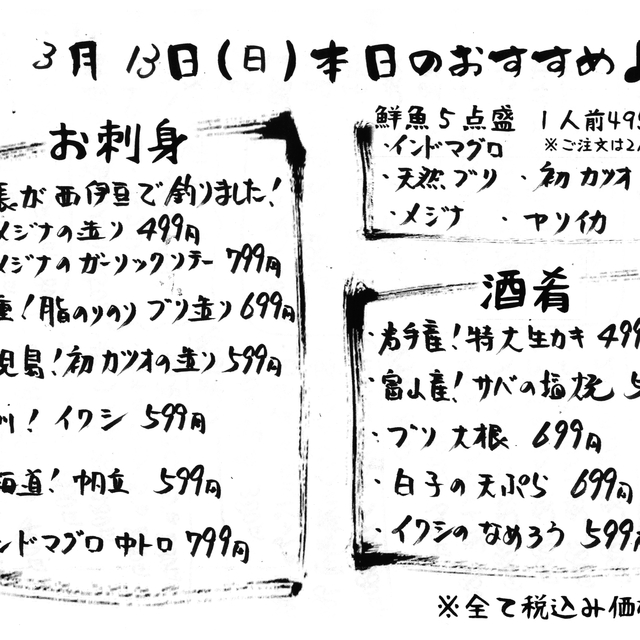 3月13日(日)本日のおすすめ
お刺身
長が西伊豆で釣りました!
メジナの造り 499円
メジナのガーリックソテー 799円
産!脂のりのり ブリ造り 699円
児島!初カツオの造り 599円
州!イワシ 599円
海道!帆立 599円
ンドマグロ中トロ 799円
鮮魚5点盛 1人前499
・インドマグロ ※ご注文は2人
・天然ブリ ・初カツオ
・メジナ ・ヤリイカ
酒肴
・岩手産!特大生カキ 499
・富山産!サバの塩焼 5
・ブリ大根 699円
・白子の天ぷら 699円
・イワシのなめろう 599円
※全て税込み価